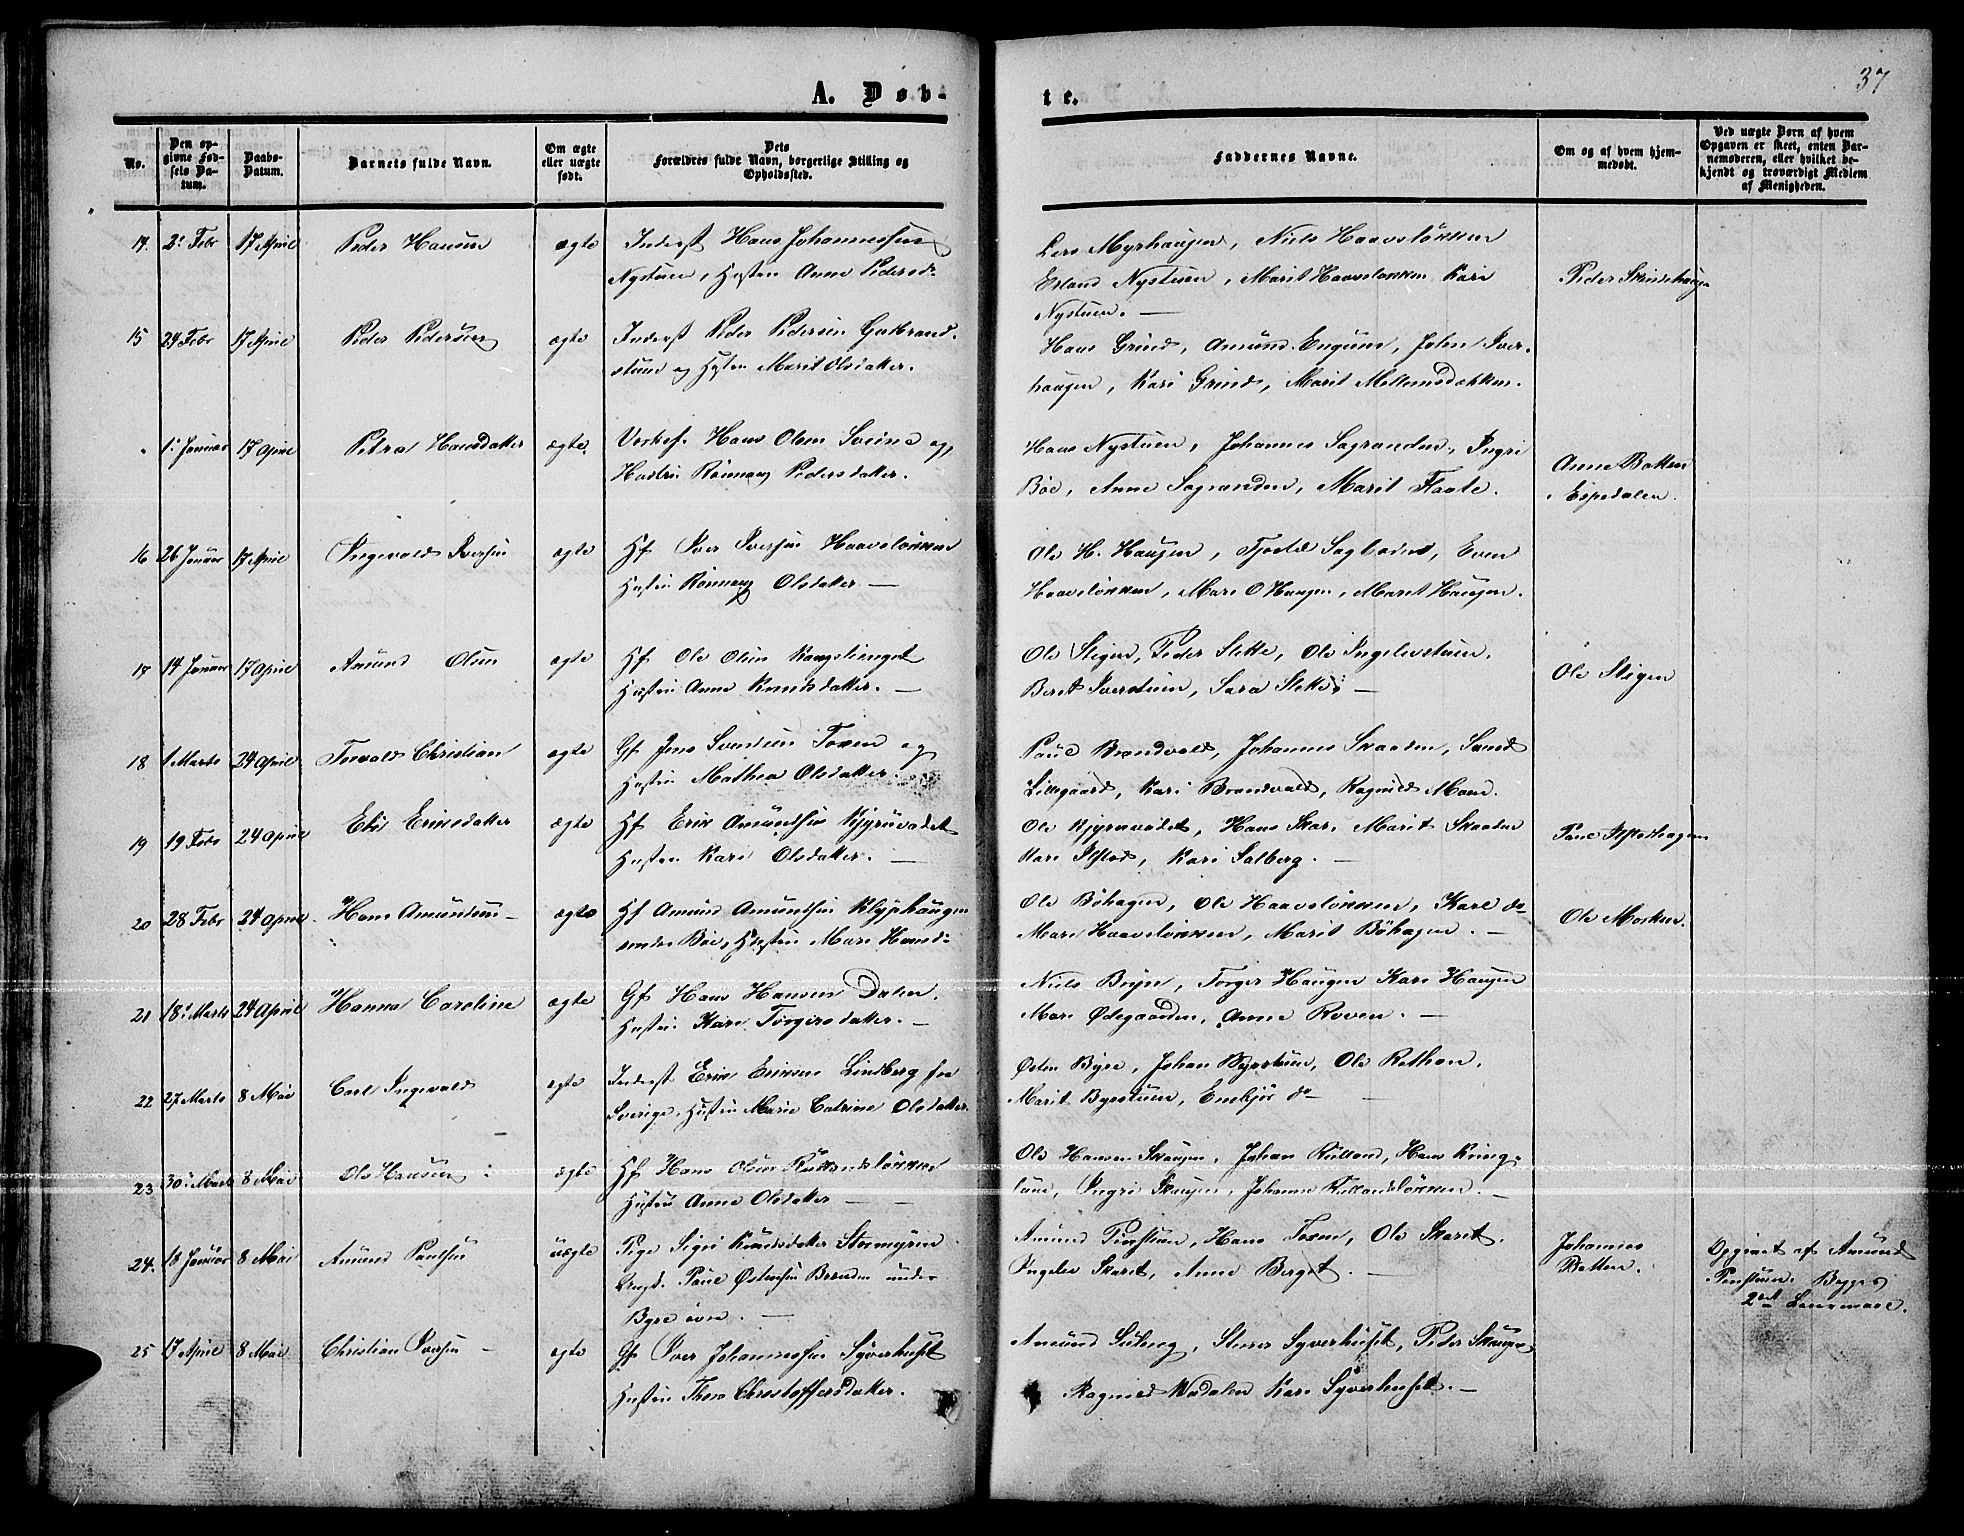 A. Døb-
te.
37
No.
Den op-
givne Fød-
sels Da-
tum.
Daabs-
Datum.
Barnets fulde Navn.
Om ægte
eller uægte
født.
Dets
Forældres fulde Navn, borgerlige Stilling og
Opholdssted.
Faddernes Navne.
Om og af hvem hjem-
medøbt.
Ved uægte Børn af hvem
Opgaven er skeet, enten Bar-
nemoderen, eller hvilket be-
kjendt og troværdigt Medlem
af Menigheden.
14. 2' Febr 17 April Peder Hansen ægte Inderst Hans Johannessen
Nystuen, Hustru Anne Pedersd.
Lars Myrhaugen, Niels Haavsløkken
Erland Nystuen, Marit Haavsløkken Kari
Nystuen. —
Peder Skindehaugen
15 24 Febr 17 April Peder Pedersen ægte Inderst Peder Pedersen Gudbrand-
stuen og Hustru Marit Olsdatter.
Hans Grind, Amund Engum, John Iver-
haugen, Kari Grind, Marit Mellemsdokken.
1' Januar 17 April Petra Hansdatter ægte. Hans Olsen og
Hustru Rønnaug Pedersdatter.
Hans Nystuen, Johannes Sagranden, Ingri
Bøe, Anne Sagranden, Marit Flaate.
Anne Bakken
Espedalen.
16 26 Januar 17 April Ingevald Iversen ægte Hf Iver Iversen Haavsløkken
Hustru Rønnaug Olsdatter —
Ole H. Haugen, Tjostel Sagbaden, Even
Haavsløkken, Mari O Haugen, Marit Haugen.
17 14 Januar 17 April Amund Olsen ægte Hf Ole Olsen
Hustru Anne Knudsdatter. —
Ole Stigen, Peder Slette, Ole Ingelevstuen.
Berit Iverstuen, Sara Slette. —
Ole Stigen
18 1 Marts 24 April Torvald Christian ægte Gf Jens Svendsen Toxen og
Hustru Mathea Olsdatter.
Paul Brandvold, Johannes Skaaden, Svend
Lillegaard, Kari Brandvold, Ragnild Moen.
19 19 Febr 24 April Eli Eriksdatter ægte Hf Erik Amundsen Kjyruvadet
Hustru Kari Olsdatter. —
Ole Kjyruvadet, Hans Skar, Marit Skaaden
Kari Ilstad, Kari Solberg. —
20 28 Febr 24 April Hans Amundsen — ægte Hf Amund Amundsen Klyphaugen
under Bøe, Hustru Mari Hansd.
Ole Böhagen, Ole Haavsløkken, Kari do
Mari Haavsløkken, Marit Böhagen. —
Ole Morken.
21 18' Marts 24 April Hanna Caroline ægte Gf Hans Hansen Dalen.
Hustru Kari Torgersdatter. —
Niels Brijn, Torger Haugen Kari Haugen
Mari Ødegaarden, Anne Roven. —
22 27 Marts 8 Mai Carl Ingevald ægte Inderst Erik Eriksen Lindberg fra
Sverige. Hustru Marie Catrine Olsdatter.
Østen Byre, Johan Byrstuen, Ole Rethon.
Marit Byrstuen, Enebjør do —
23 30' Marts 8 Mai Ole Hansen ægte Hf Hans Olsen Rullandsløkken
Hustru Anne Olsdatter —
Ole Hansen Skaugen, Johan Rulland, Hans Kring-
lun, Ingri Skaugen, Johanne Rullandsløkken. —
24. 18 Januar 8 Mai Amund Paulsen uægte Pige Sigri Knudsdatter Stormyren
Ungk. Paul Østensen Brenden under
Byre øvre. —
Amund Pinstuen, Hans Toxen, Ole Skaret.
Ingelev Skaret, Anne Berget. —
Johannes
Bakken.
Opgivet af Amund
Pinstuen. Begges
2det Leiermaal.
25 17 April 8 Mai Christian Iversen — ægte Gf Iver Johannessen Syverhuset
Hustru Thea Christoffersdatter.
Amund Suleng, Sturer Syverhuset, Peder Skaugen
Ragnild Nodalen Kari Syverhuset. —